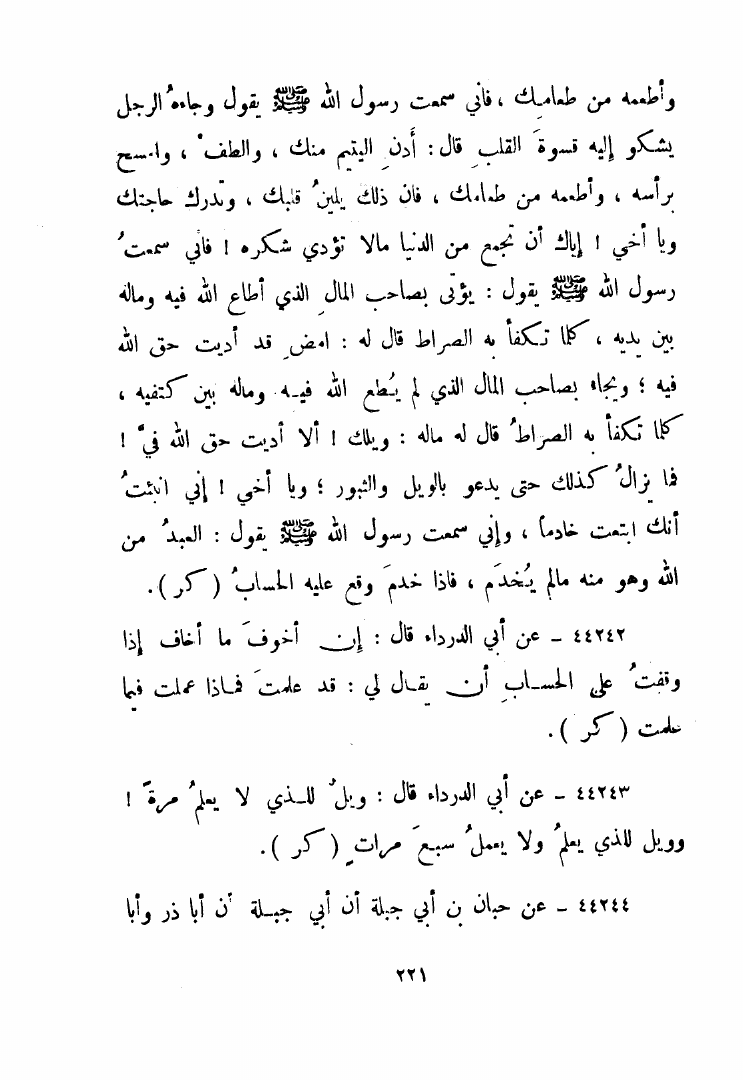 وأطعمه من طعامـك ، فاني سمعت رسول الله ﷺ يقول وجاءهُ الرجل
يشكو إليه قسوةَ القلبِ قال : أَدنِ اليتيم منك ، والطفْ ، وامسح
برأسه ، وأطعمه من طعامك ، فان ذلك يلينُ قلبك ، وتدرك حاجتك
ويا أخي ! إياك أن تجمع من الدنيا مالا تؤدي شكره ! فاني سمعتُ
رسول الله ﷺ يقول : يؤتى بصاحب المالِ الذي أطاع الله فيه وماله
بين يديه ، كلما تـكفأ به الصراط قال له : امضِ قد أديت حق الله
فيه ؛ ويجاء بصاحب المال الذي لم يُـطع الله فيـه وماله بين كتفيه ،
كلما تكفأ به الصراطُ قال له ماله : ويلك ! ألا أديت حق الله فيَّ !
فما يزالُ كـذلك حتى يدعو بالويل والثبور ؛ ويا أخي ! إني انبئتُ
أنك ابتعت خادماً ، وإني سمعت رسول الله ﷺ يقول : العبدُ من
الله وهو منه مالم يُـخدَم ، فاذا خدمَ وقع عليه الحسابُ ( كر ) .
٤٤٢٤٢ ـ عن أبي الدرداء قال : إن أخوفَ ما أخاف إذا
وقفتُ على الحسـابِ أن يقـال لي : قد علمتَ فمـاذا عملت فيما
علمت ( كر ) .
٤٤٢٤٣ ـ عن أبي الدرداء قال : ويلٌ للـذي لا يعلمُ مرةً !
وويل للذي يعلمُ ولا يعملُ سبعَ مراتٍ ( كر ) .
٤٤٢٤٤ ـ عن حبان بن أبي جبلة أن أبي جبـلة أن أبا ذر وأبا
٢٢١